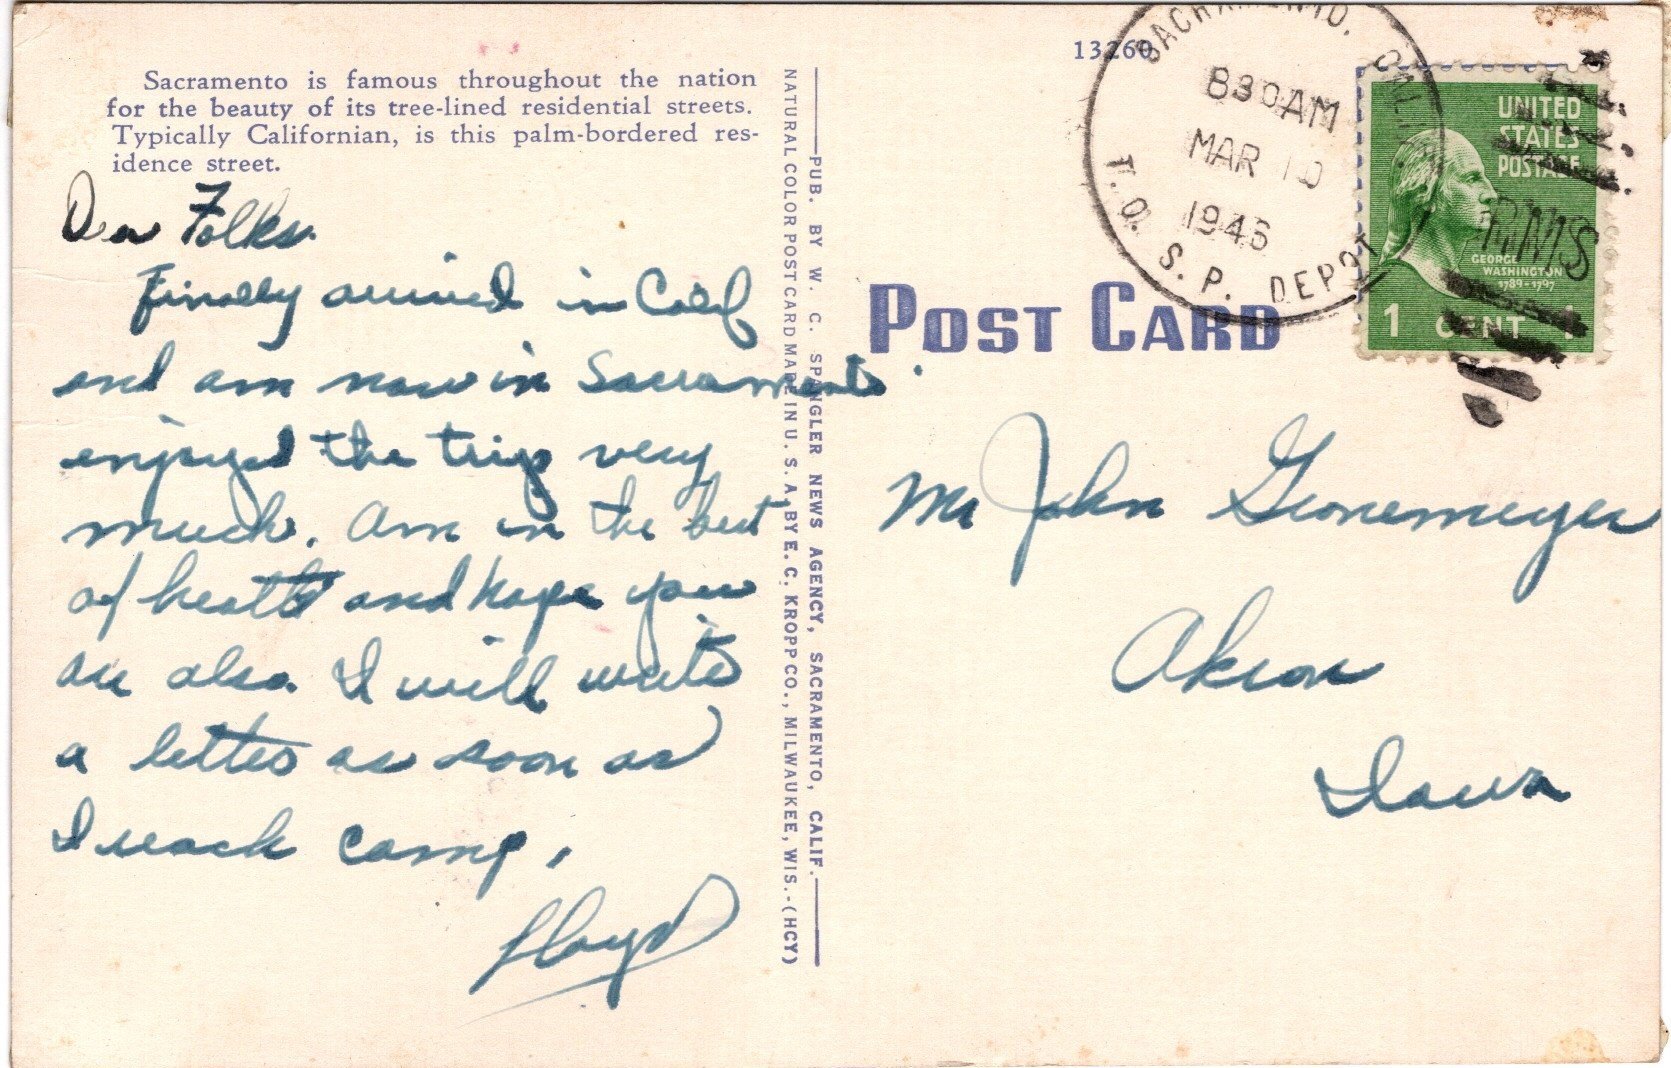 Sacramento is famous throughout the nation
for the beauty of its tree-lined residential streets.
Typically Californian, is this palm-bordered res-
idence street.
Dear Folks.
Finally arrived in Calif
and am now in Sacramento.
enjoyed the trip very
much. Am in the best
of health and hope you
are also. I will write
a letter as soon as
I reach camp.
Floyd
PUB. BY W. C. SPANGLER NEWS AGENCY, SACRAMENTO, CALIF.
NATURAL COLOR POST CARD MADE IN U. S. A. BY E. C. KROPP CO., MILWAUKEE, WIS.-(HCY)
13260
SACRAMENTO, CALIF.
830AM
MAR 10
1946
T.O. S.P. DEPOT
UNITED
STATES
POSTAGE
RMS
GEORGE
WASHINGTON
1789-1797
1 CENT 1
POST CARD
Mr John Gronemeyer
Akron
Iowa